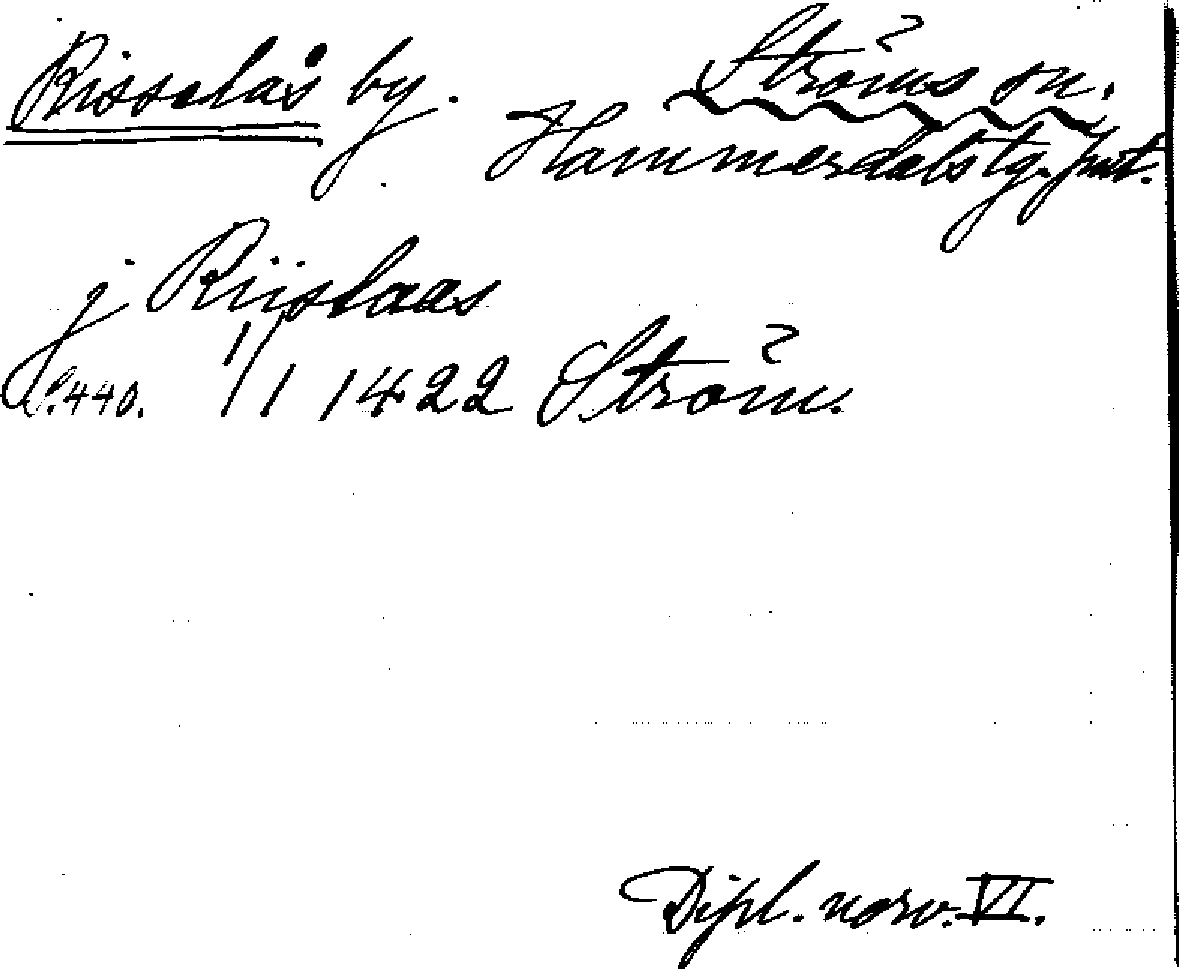 Risselås by. Ströms sn.
Hammerdals tg. Jmt.
j Riislaas
S. 440. 1/1 1422 Ström.
Dipl. norv. VI.